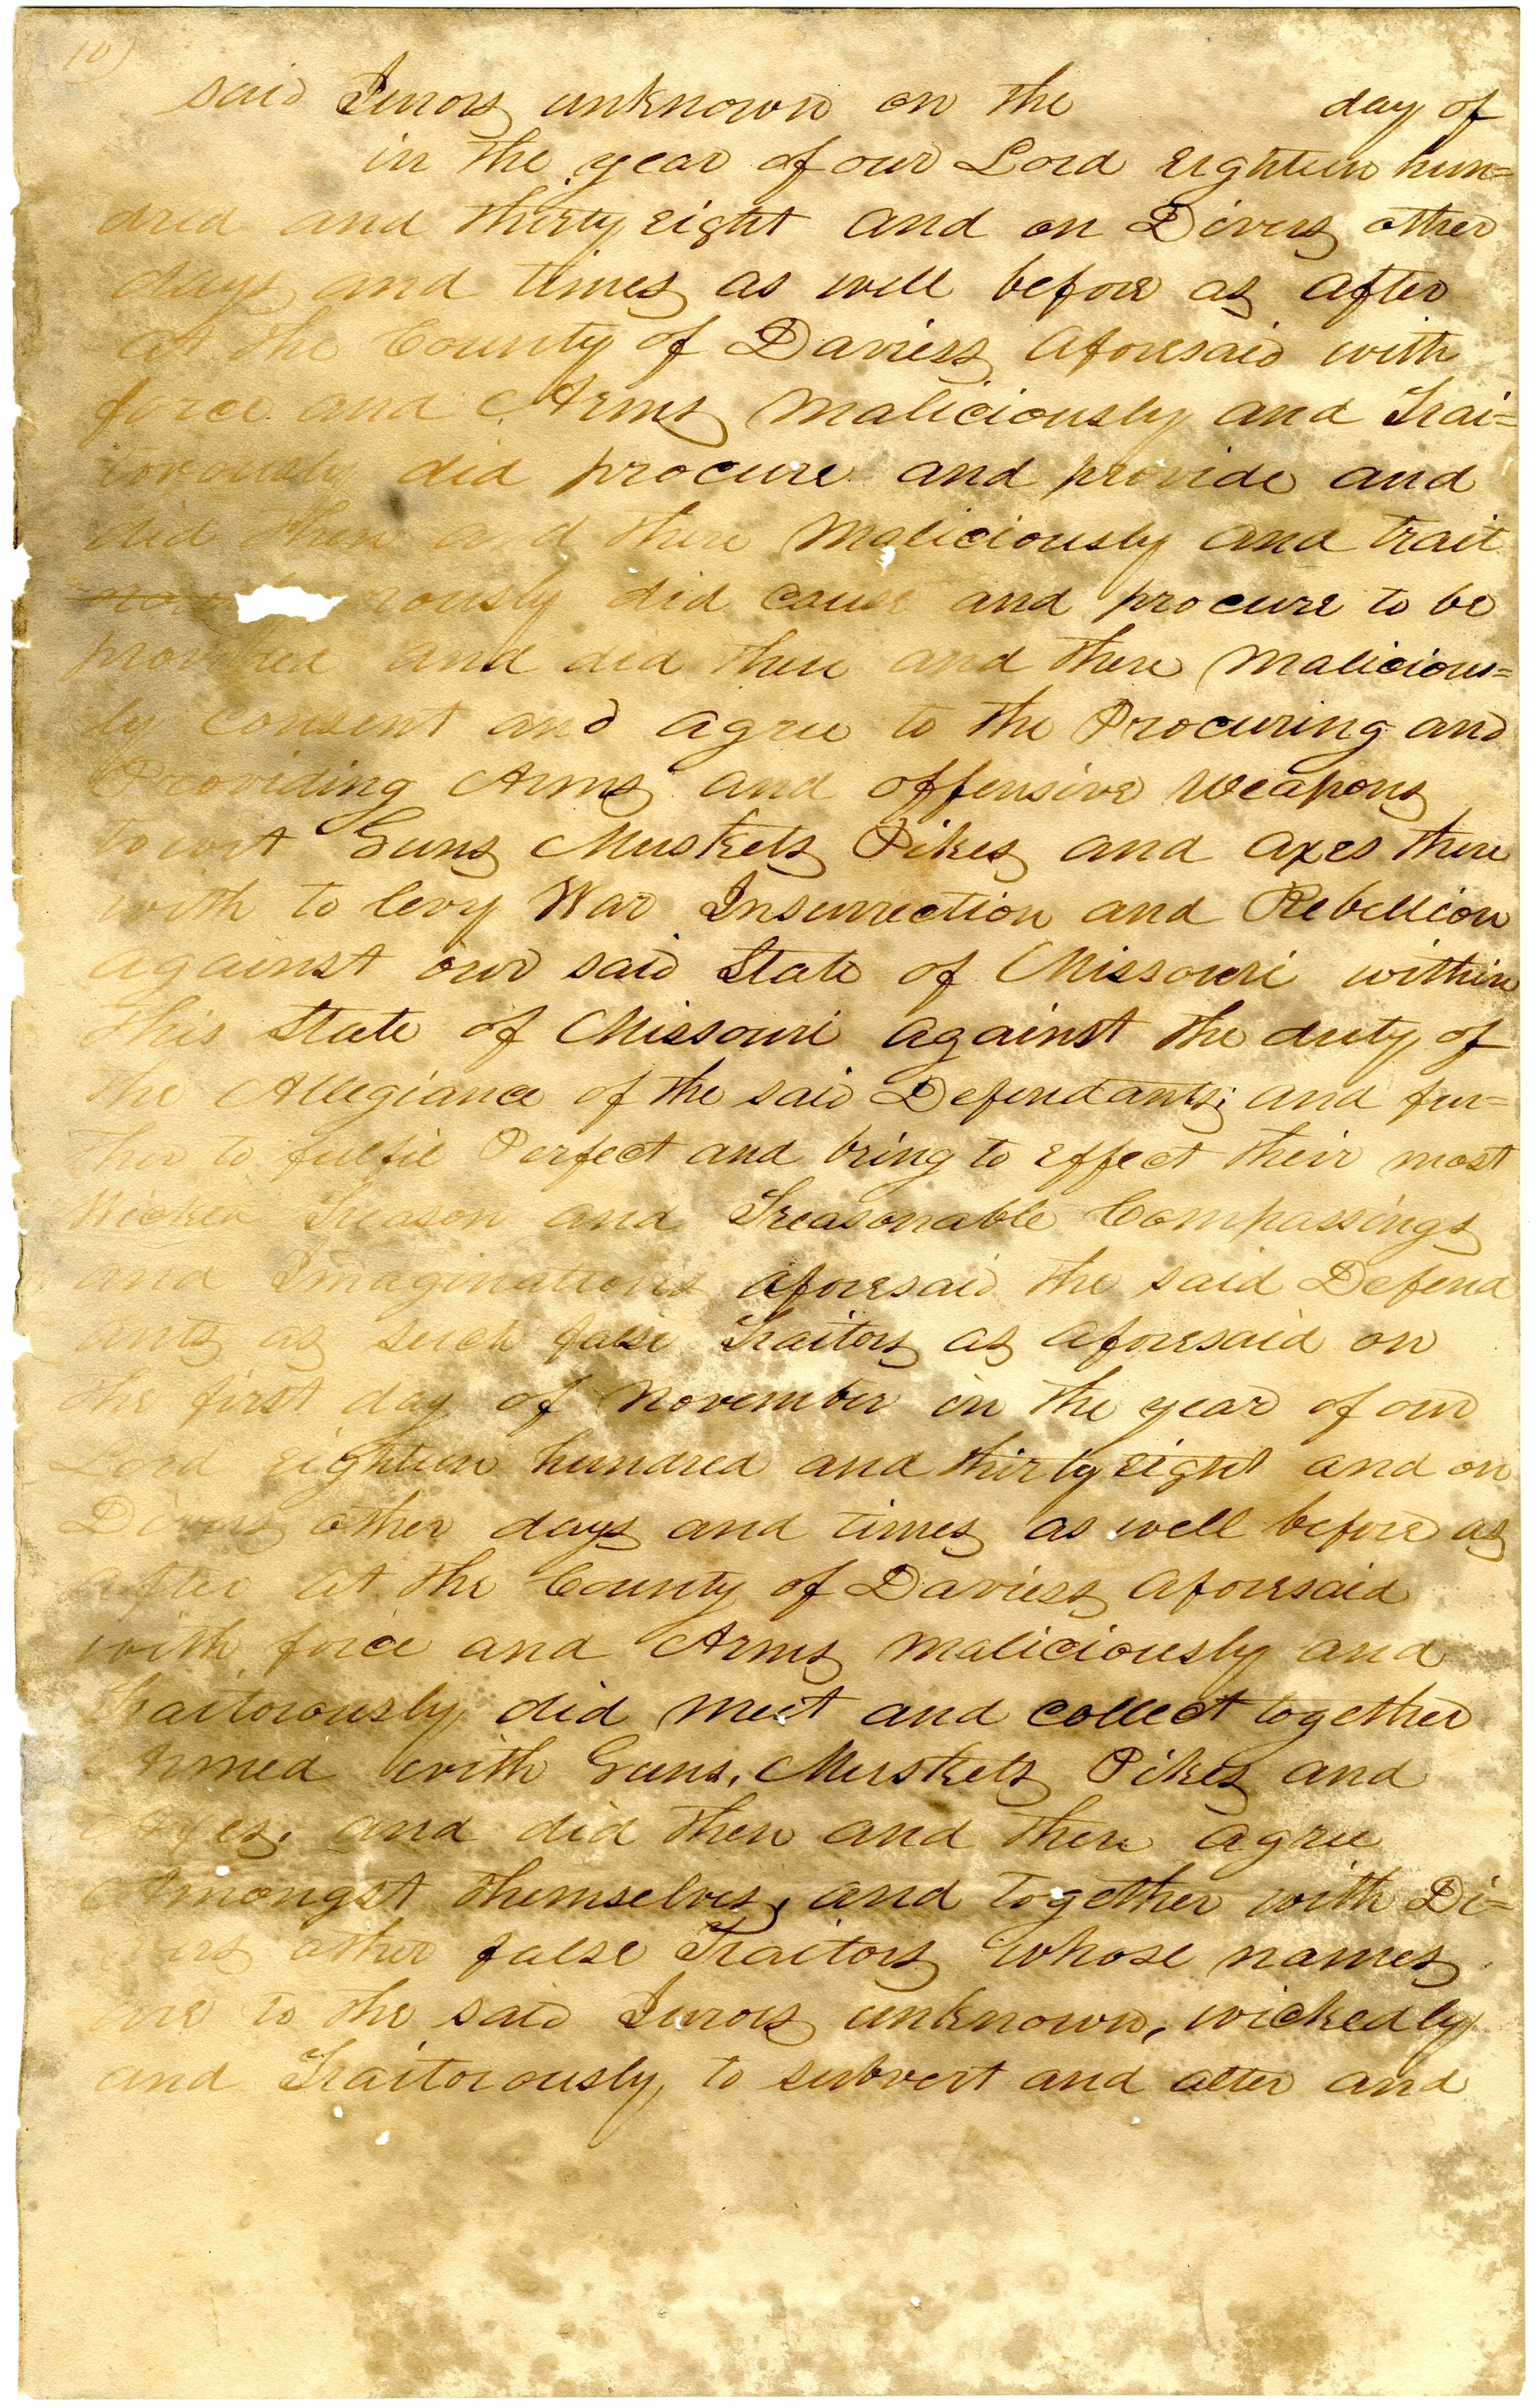 10)
said Jurors unknown on the day of
in the year of our Lord Eighteen hun=
dred and thirty eight and on Divers other
days and times as well before as after
at the County of Daviess aforesaid with
force and Arms Maliciously and Trai=
torously did procure and provide and
did then and there Maliciously and trait
rously did cause and procure to be
provided and did then and there Malicious=
ly consent and agree to the Procuring and
Providing Arms and offensive Weapons
to wit Guns Muskets Pikes and Axes there
with to levy War Insurrection and Rebellion
against our said State of Missouri within
this State of Missouri against the duty of
the Allegiance of the said Defendants; and fur=
ther to fulfil Perfect and bring to Effect their most
Wicked Treason and Treasonable Compassings
and Imaginations aforesaid the said Defend
ants as such false Traitors as aforesaid on
the first day of November in the year of our
Lord eighteen hundred and thirty eight and on
Divers other days and times as well before as
after at the County of Daviess aforesaid
with force and Arms Maliciously and
Traitorously did meet and collect together
Armed with Guns, Muskets Pikes and
Axes, and did then and there agree
Amongst themselves, and together with Di=
vers other false Traitors whose names
are to the said Jurors unknown, wickedly
and Traitorously, to subvert and alter and